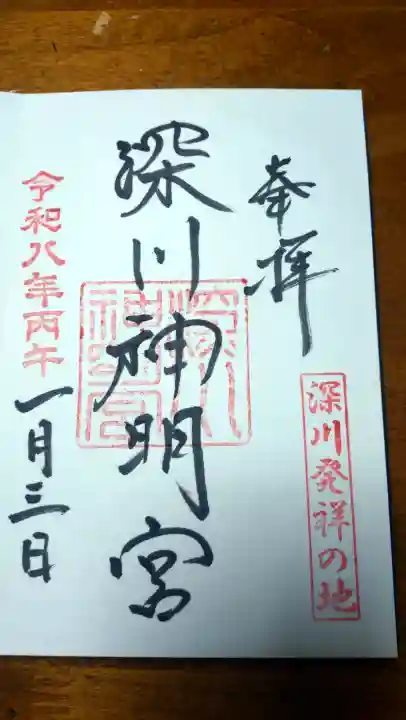 奉拝
深川発祥の地
深川神明宮
深川神明宮
令和八年丙午
一月三日